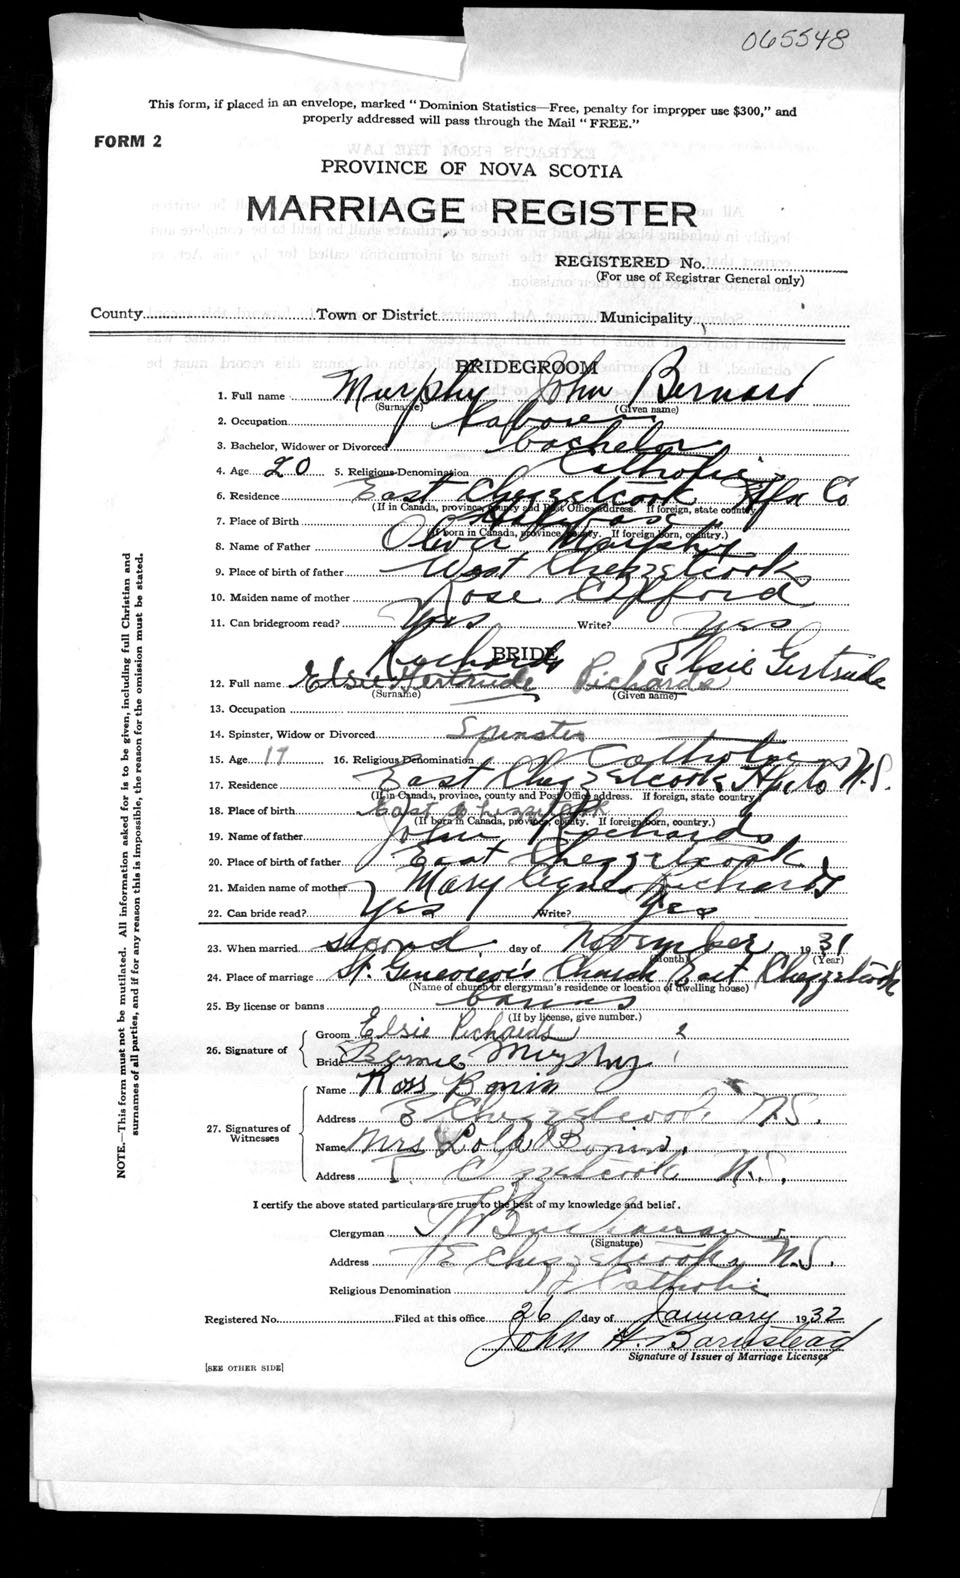 065548
This form, if placed in an envelope, marked "Dominion Statistics—Free, penalty for improper use $300," and
properly addressed will pass through the Mail "FREE."
FORM 2
PROVINCE OF NOVA SCOTIA
MARRIAGE REGISTER
REGISTERED No.
(For use of Registrar General only)
County Town or District Municipality
BRIDEGROOM
1. Full name Murphy John Bernard
(Surname) (Given name)
2. Occupation Laborer
3. Bachelor, Widower or Divorced bachelor
4. Age 20 5. Religious Denomination Catholic
6. Residence East Chezzetcook Hfx Co
(If in Canada, province, county and Post Office address. If foreign, state country)
7. Place of Birth
(If born in Canada, province, county. If foreign born, country.)
8. Name of Father Oliver Murphy
9. Place of birth of father West Chezzetcook
10. Maiden name of mother Rose
11. Can bridegroom read? Yes Write? yes
BRIDE
Richards Elsie Gertrude
12. Full name Elsie Gertrude Richards
(Surname) (Given name)
13. Occupation
14. Spinster, Widow or Divorced Spinster
15. Age 19 16. Religious Denomination Catholic
17. Residence East Chezzetcook N.S.
(If in Canada, province, county and Post Office address. If foreign, state country)
18. Place of birth East Chezzetcook
(If born in Canada, province, county. If foreign born, country.)
19. Name of father John Richards
20. Place of birth of father East Chezzetcook
21. Maiden name of mother Mary Agnes Richards
22. Can bride read? Yes Write? Yes
23. When married second day of November 1931
(Month) (Year)
24. Place of marriage St. Genevieve's Church East Chezzetcook
(Name of church or clergyman's residence or location of dwelling house)
25. By license or banns banns
(If by license, give number.)
26. Signature of
Groom Elsie Richards 2
Bride Bernie Murphy 1
27. Signatures of Witnesses
Name Ross Bonin
Address E Chezzetcook N.S.
Name Mrs Lola Bonin
Address Chezzetcook N.S.
I certify the above stated particulars are true to the best of my knowledge and belief.
Clergyman
(Signature)
Address E Chezzetcook N.S.
Religious Denomination Catholic
Registered No. Filed at this office 26 day of January 1932
John H. Barnstead
Signature of Issuer of Marriage Licenses
[SEE OTHER SIDE]
NOTE.—This form must not be mutilated. All information asked for is to be given, including full Christian and
surnames of all parties, and if for any reason this is impossible, the reason for the omission must be stated.